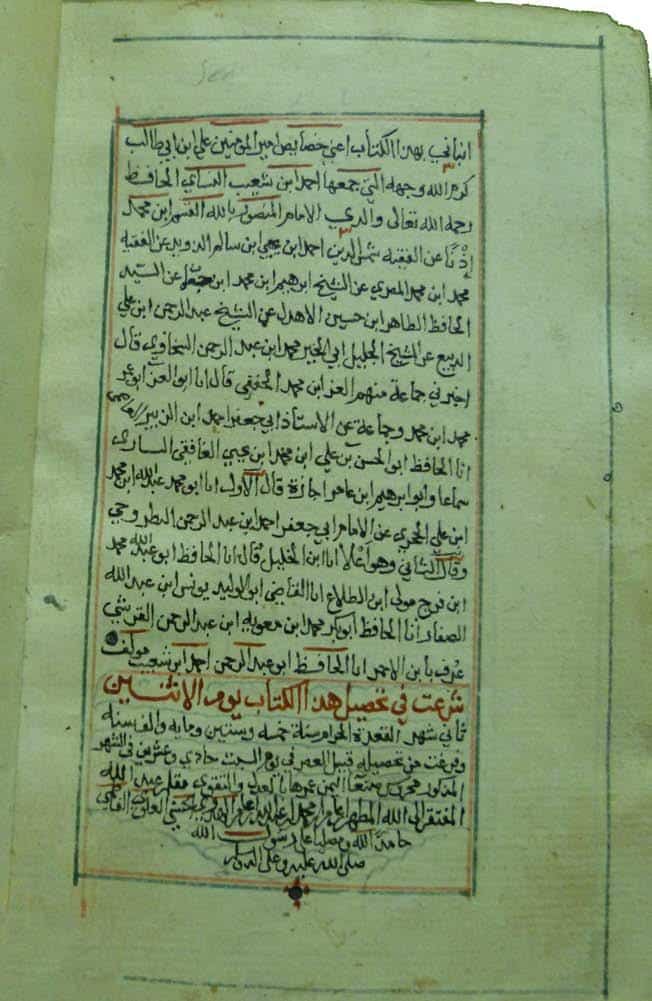 انبأني بهذا الكتاب اعني خصايص امير المومنين علي ابن ابي طالب
كرم الله وجهه التي جمعها احمد ابن شعيب النساي الحافظ
رحمه الله تعالى والدي الامام المنصور بالله القسم ابن محمد
إذنًا عن الفقيه شمس الدين احمد ابن يحيى ابن سالم الذويد عن الفقيه
محمد ابن محمد المصري عن الشيخ ابرهيم ابن محمد ابن جعمان عن السيد
الحافظ الطاهر ابن حسين الاهدل عن الشيخ عبد الرحمن ابن علي
الديبع عن الشيخ الجليل ابي الخير محمد ابن عبد الرحمن السخاوي قال
اخبرني جماعة منهم العز ابن محمد الحنفي قال انا ابو العز ابو عمر
محمد ابن محمد وجماعة عن الاستاذ ابي جعفر احمد ابن الزبير العاصمي
انا الحافظ ابو الحسن بن علي ابن محمد ابن يحيى الغافقي الساري
سماعا وابو ابرهيم ابن عامر اجازة قال الاول انا ابو محمد عبد الله ابن محمد
ابن علي الحجري عن الامام ابي جعفر احمد ابن عبد الرحمن البطروجي
وقال الثاني وهو أعلا انا ابن الخليل قال انا الحافظ ابو عبد الله محمد
ابن فرج مولى ابن الطلاع انا القاضي ابو الوليد يونس ابن عبد الله
الصفار انا الحافظ ابو بكر محمد ابن معويه ابن عبد الرحمن القرشي
عرف بابن الاحمر انا الحافظ ابو عبد الرحمن احمد ابن شعيب مولفه
شرعت في تحصيل هذا الكتاب يوم الاثنين
ثاني شهر القعدة الحرام سنة خمسه وستين ومايه والف سنه
وفرغت من تحصيله قبيل العصر في يوم السبت حادي وعشرين في الشهر
المذكور بمحروس صنعا اليمن عمرها بالعدل والتقوى بقلم عبد الله
المفتقر الى الله المطهر
حامدًا لله ومصليا على رسول الله
صلى الله عليه وعلى اله وسلم